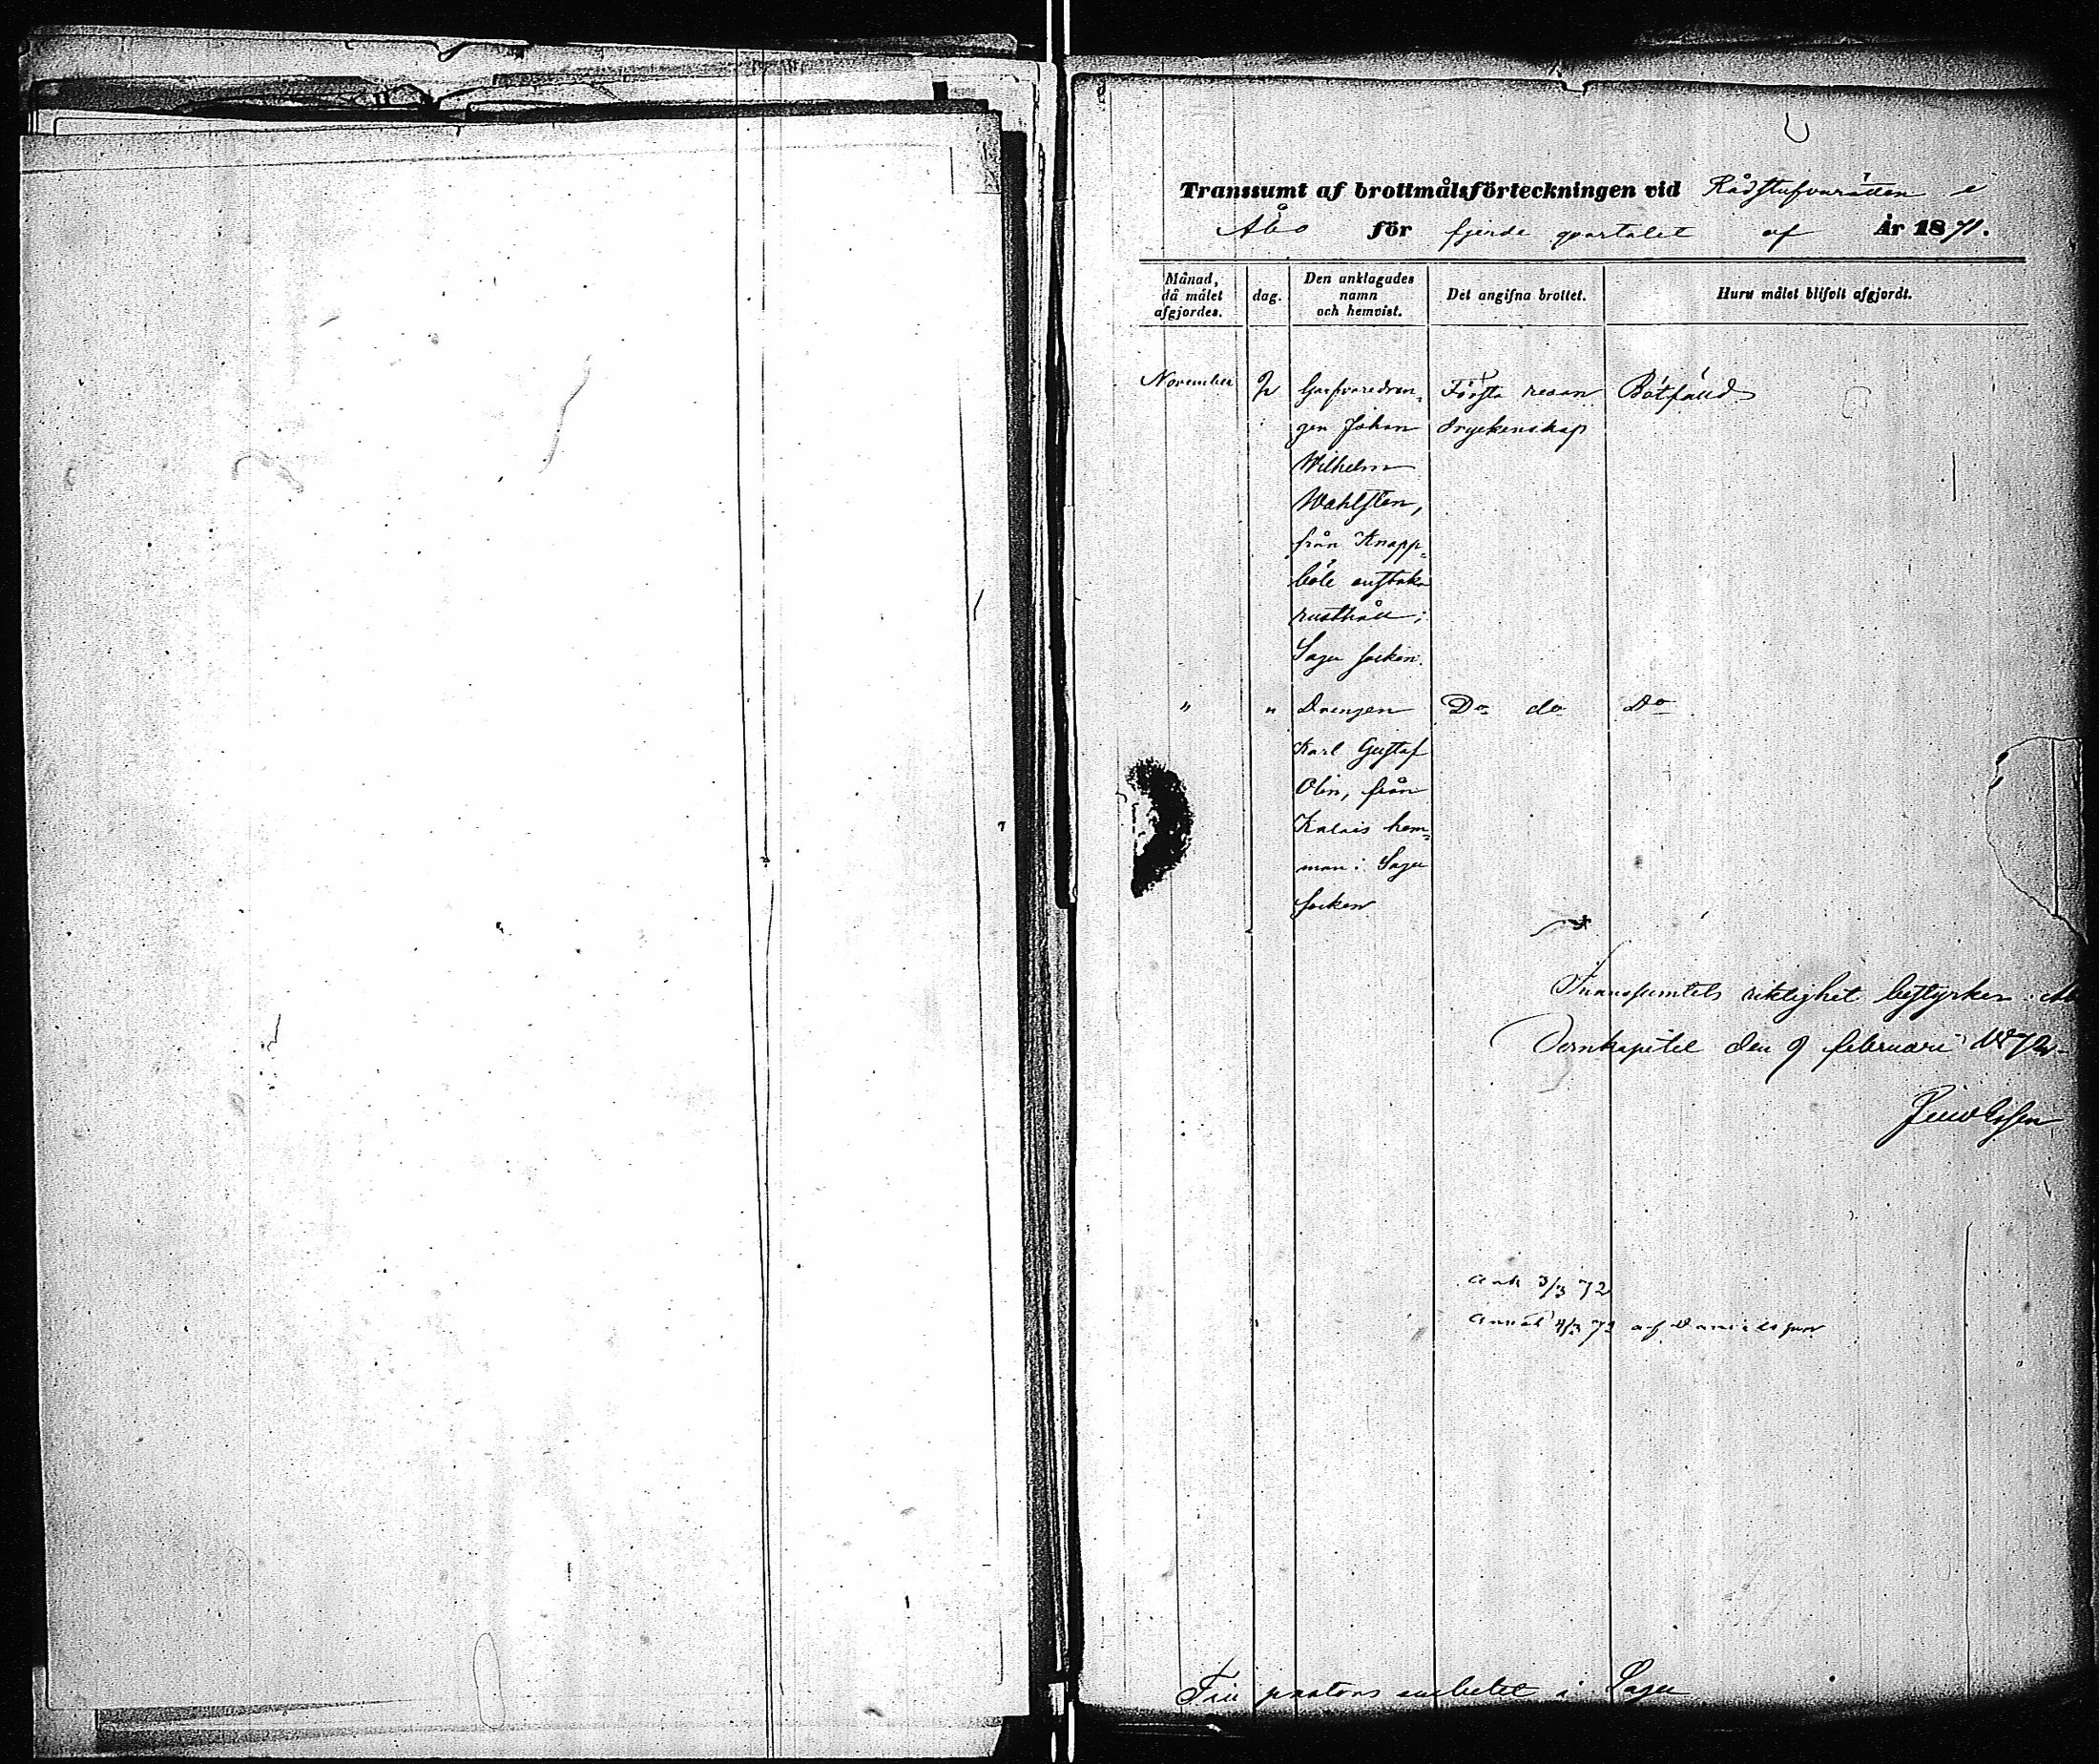 Transsumt af brottmålsförteckningen vid Rådstufvurätten i
Åbo för fjerde qvartalet af År 1871.
Månad, då målet afgjordes. dag. Den anklagades namn och hemvist. Det angifna brottet. Huru målet blifvit afgjordt.
November 2 Garfvaredren- Första resan Botfälld
gen Johan dryckenskap
Wilhelm
Wahlsten,
från Knapp-
böle
rusthåll i
Sagu socken.
" " Drengen Do do Do
Karl Gustaf
Olin, från
Kalais hem-
man i Sagu
socken
Transsumtets riktighet bestyrker. Åbo
Domkapitel den 9 februari 1872.
ank 3/3 72
af Danielsson
Till pastors embetet i Sagu